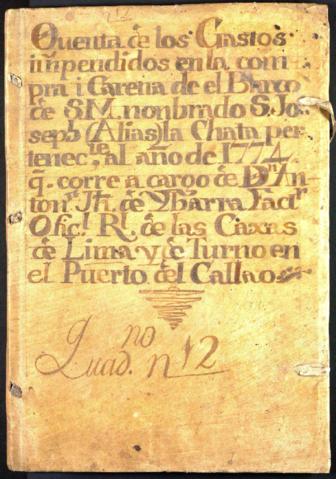 Quenta de los Gastos
impendidos en la com
pra i Carena de el Barco
de S.M. nonbrado S. Jo-
seph (Alias) la Chata per-
tenec.te al año de 1774.
q. corre a cargo de Dn An-
ton.
de Ybarra
Ofic.l Rl. de las Caxas
de Lima y de Turno en
el Puerto del Callao
Quad.no n 12